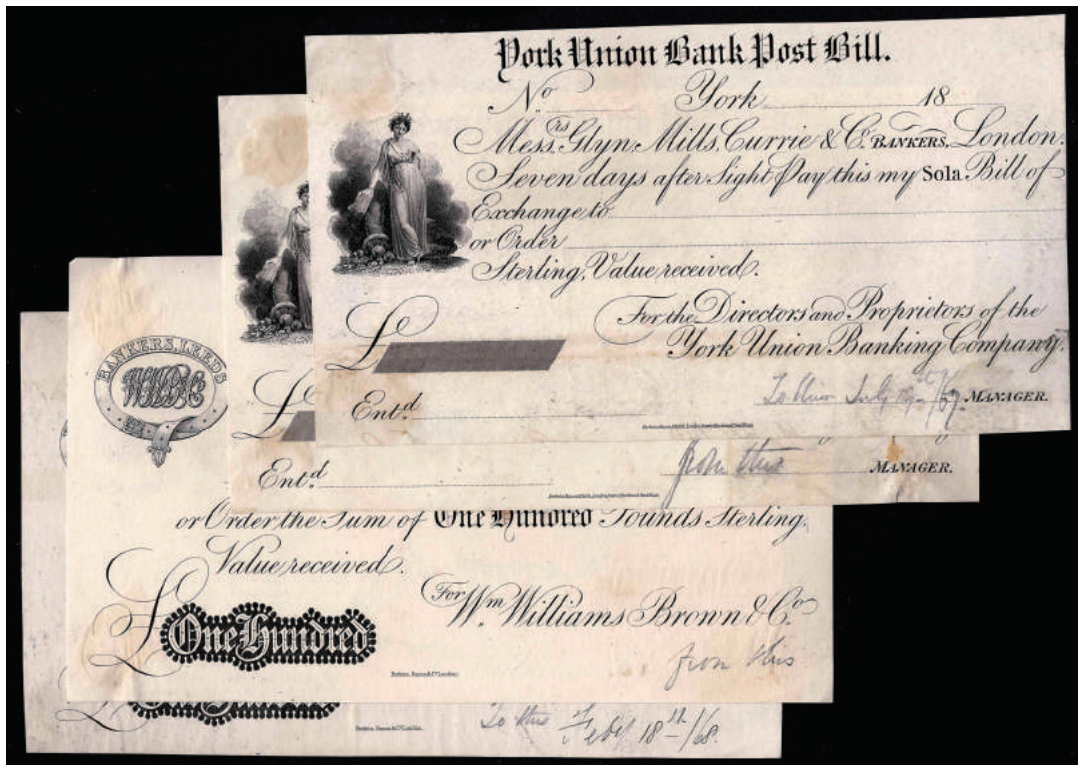 York Union Bank Post Bill.
No York 18
Messrs Glyn, Mills, Currie & Co. BANKERS, London.
Seven days after Sight Pay this my Sola Bill of
Exchange to
or Order
Sterling, Value received.
For the Directors and Proprietors of the
York Union Banking Company.
£
Entd. To this July MANAGER.
£
Entd from this MANAGER.
BANKERS, LEEDS
WWB&Co
or Order, the Sum of One Hundred Pounds Sterling,
Value received.
For Wm. Williams Brown & Co
£ One Hundred
from this
Perkins, Bacon & Co London
To this Feby 18th/68.